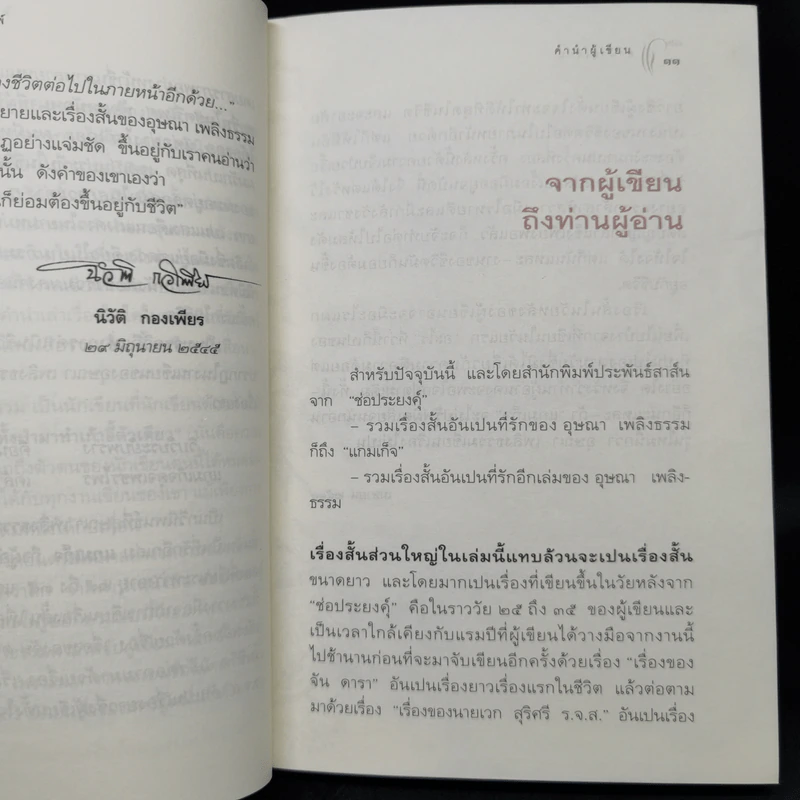 งชีวิตต่อไปในภายหน้าอีกด้วย..."
ยายและเรื่องสั้นของอุษณา เพลิงธรรม
ฏอย่างแจ่มชัด ขึ้นอยู่กับเราคนอ่านว่า
นั้น ดังคำของเขาเองว่า
ก็ย่อมต้องขึ้นอยู่กับชีวิต"
นิวัติ กองเพียร
นิวัติ กองเพียร
๒๙ มิถุนายน ๒๕๔๕
คำนำผู้เขียน
๑๑
จากผู้เขียน
ถึงท่านผู้อ่าน
สำหรับปัจจุบันนี้ และโดยสำนักพิมพ์ประพันธ์สาส์น
จาก "ช่อประยงค์ุ"
– รวมเรื่องสั้นอันเปนที่รักของ อุษณา เพลิงธรรม
ก็ถึง "แกมเก็จ"
– รวมเรื่องสั้นอันเปนที่รักอีกเล่มของ อุษณา เพลิง-
ธรรม
เรื่องสั้นส่วนใหญ่ในเล่มนี้แทบล้วนจะเปนเรื่องสั้น
ขนาดยาว และโดยมากเปนเรื่องที่เขียนขึ้นในวัยหลังจาก
"ช่อประยงค์ุ" คือในราววัย ๒๕ ถึง ๓๕ ของผู้เขียนและ
เป็นเวลาใกล้เคียงกับแรมปีที่ผู้เขียนได้วางมือจากงานนี้
ไปช้านานก่อนที่จะมาจับเขียนอีกครั้งด้วยเรื่อง "เรื่องของ
จัน ดารา" อันเปนเรื่องยาวเรื่องแรกในชีวิต แล้วต่อตาม
มาด้วยเรื่อง "เรื่องของนายเวก สุริศรี ร.จ.ส." อันเปนเรื่อง